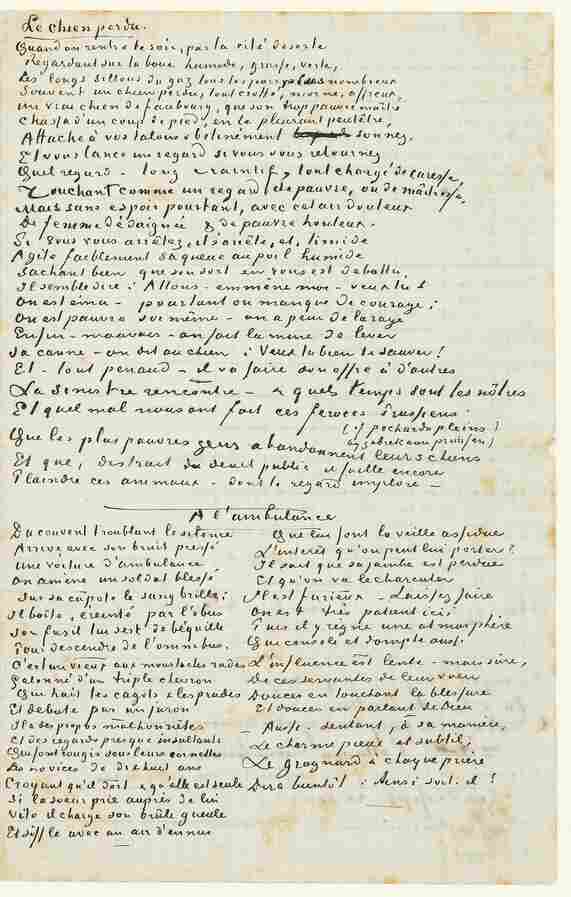 Le chien perdu.
Quand on rentre le soir, par la cité déserte
Regardant sur la boue humide, grasse, verte,
Les longs sillons du gaz tous les jours plus nombreux
Souvent un chien perdu, tout crotté, morne, affreux,
Un vrai chien de faubourg, que son trop pauvre maître
Chassa d'un coup de pied, en le pleurant peut être,
Attache à vos talons obstinément son nez,
Et vous lance un regard si vous vous retournez
Quel regard - long craintif, tout chargé de caresse,
Touchant comme un regard de pauvre, ou de maîtresse,
Mais sans espoir pourtant, avec cet air douteux
De femme dédaignée & de pauvre honteux.
Si vous vous arrêtez, il s'arrête, et, timide
Agite faiblement sa queue au poil humide
Sachant bien que son sort en vous est débattu,
Il semble dire : Allons - emmène moi - veux tu ?
On est ému - pourtant on manque de courage ;
On est pauvre soi même - on a peur de la rage
Enfin - mauvais - on fait la mine de lever
Sa canne - on dit au chien : Veux tu bien te sauver !
Et - tout penaud - il va faire son offre à d'autres
La sinistre rencontre - & quels temps sont les nôtres
Et quel mal nous ont fait ces féroces Prussiens
(if pochards pleins)
Que les plus pauvres gens abandonnent leurs chiens
Et que, distrait du deuil public il faille encore
Plaindre ces animaux - dont le regard implore -
A l'ambulance
Du couvent troublant le silence
Arrive avec son bruit pressé
Une voiture d'ambulance
On amène un soldat blessé
Sur sa capote le sang brille ;
Il boite, éreinté par l'obus
Son fusil lui sert de béquille
Pour descendre de l'omnibus.
C'est un vieux aux moustaches rudes
Galonné d'un triple chevron
Qui hait les cagots & les prudes
Et débute par un juron
Il a des propos malhonnêtes
Et des regards presque insultants
Qui font rougir sous leurs cornettes
Les novices de dix huit ans
Croyant qu'il dort & qu'elle est seule
Si la soeur prie auprès de lui
Vite il charge son brûle gueule
Et siffle avec un air d'ennui
Que lui font la veille assidue
L'intérêt qu'on peut lui porter ?
Il sait que sa jambe est perdue
Et qu'on va le charcuter
Il est furieux - Laissez faire
On est très patient ici ;
Puis il y règne une atmosphère
Qui console et dompte aussi.
L'influence est lente - mais sûre,
De ces servantes de leur voeu
Douces en touchant la blessure
Et douces en parlant de Dieu
- Aussi - sentant, à sa manière,
Le charme pieux et subtil,
Le grognard à chaque prière
Dira bientôt : Ainsi soit-il !